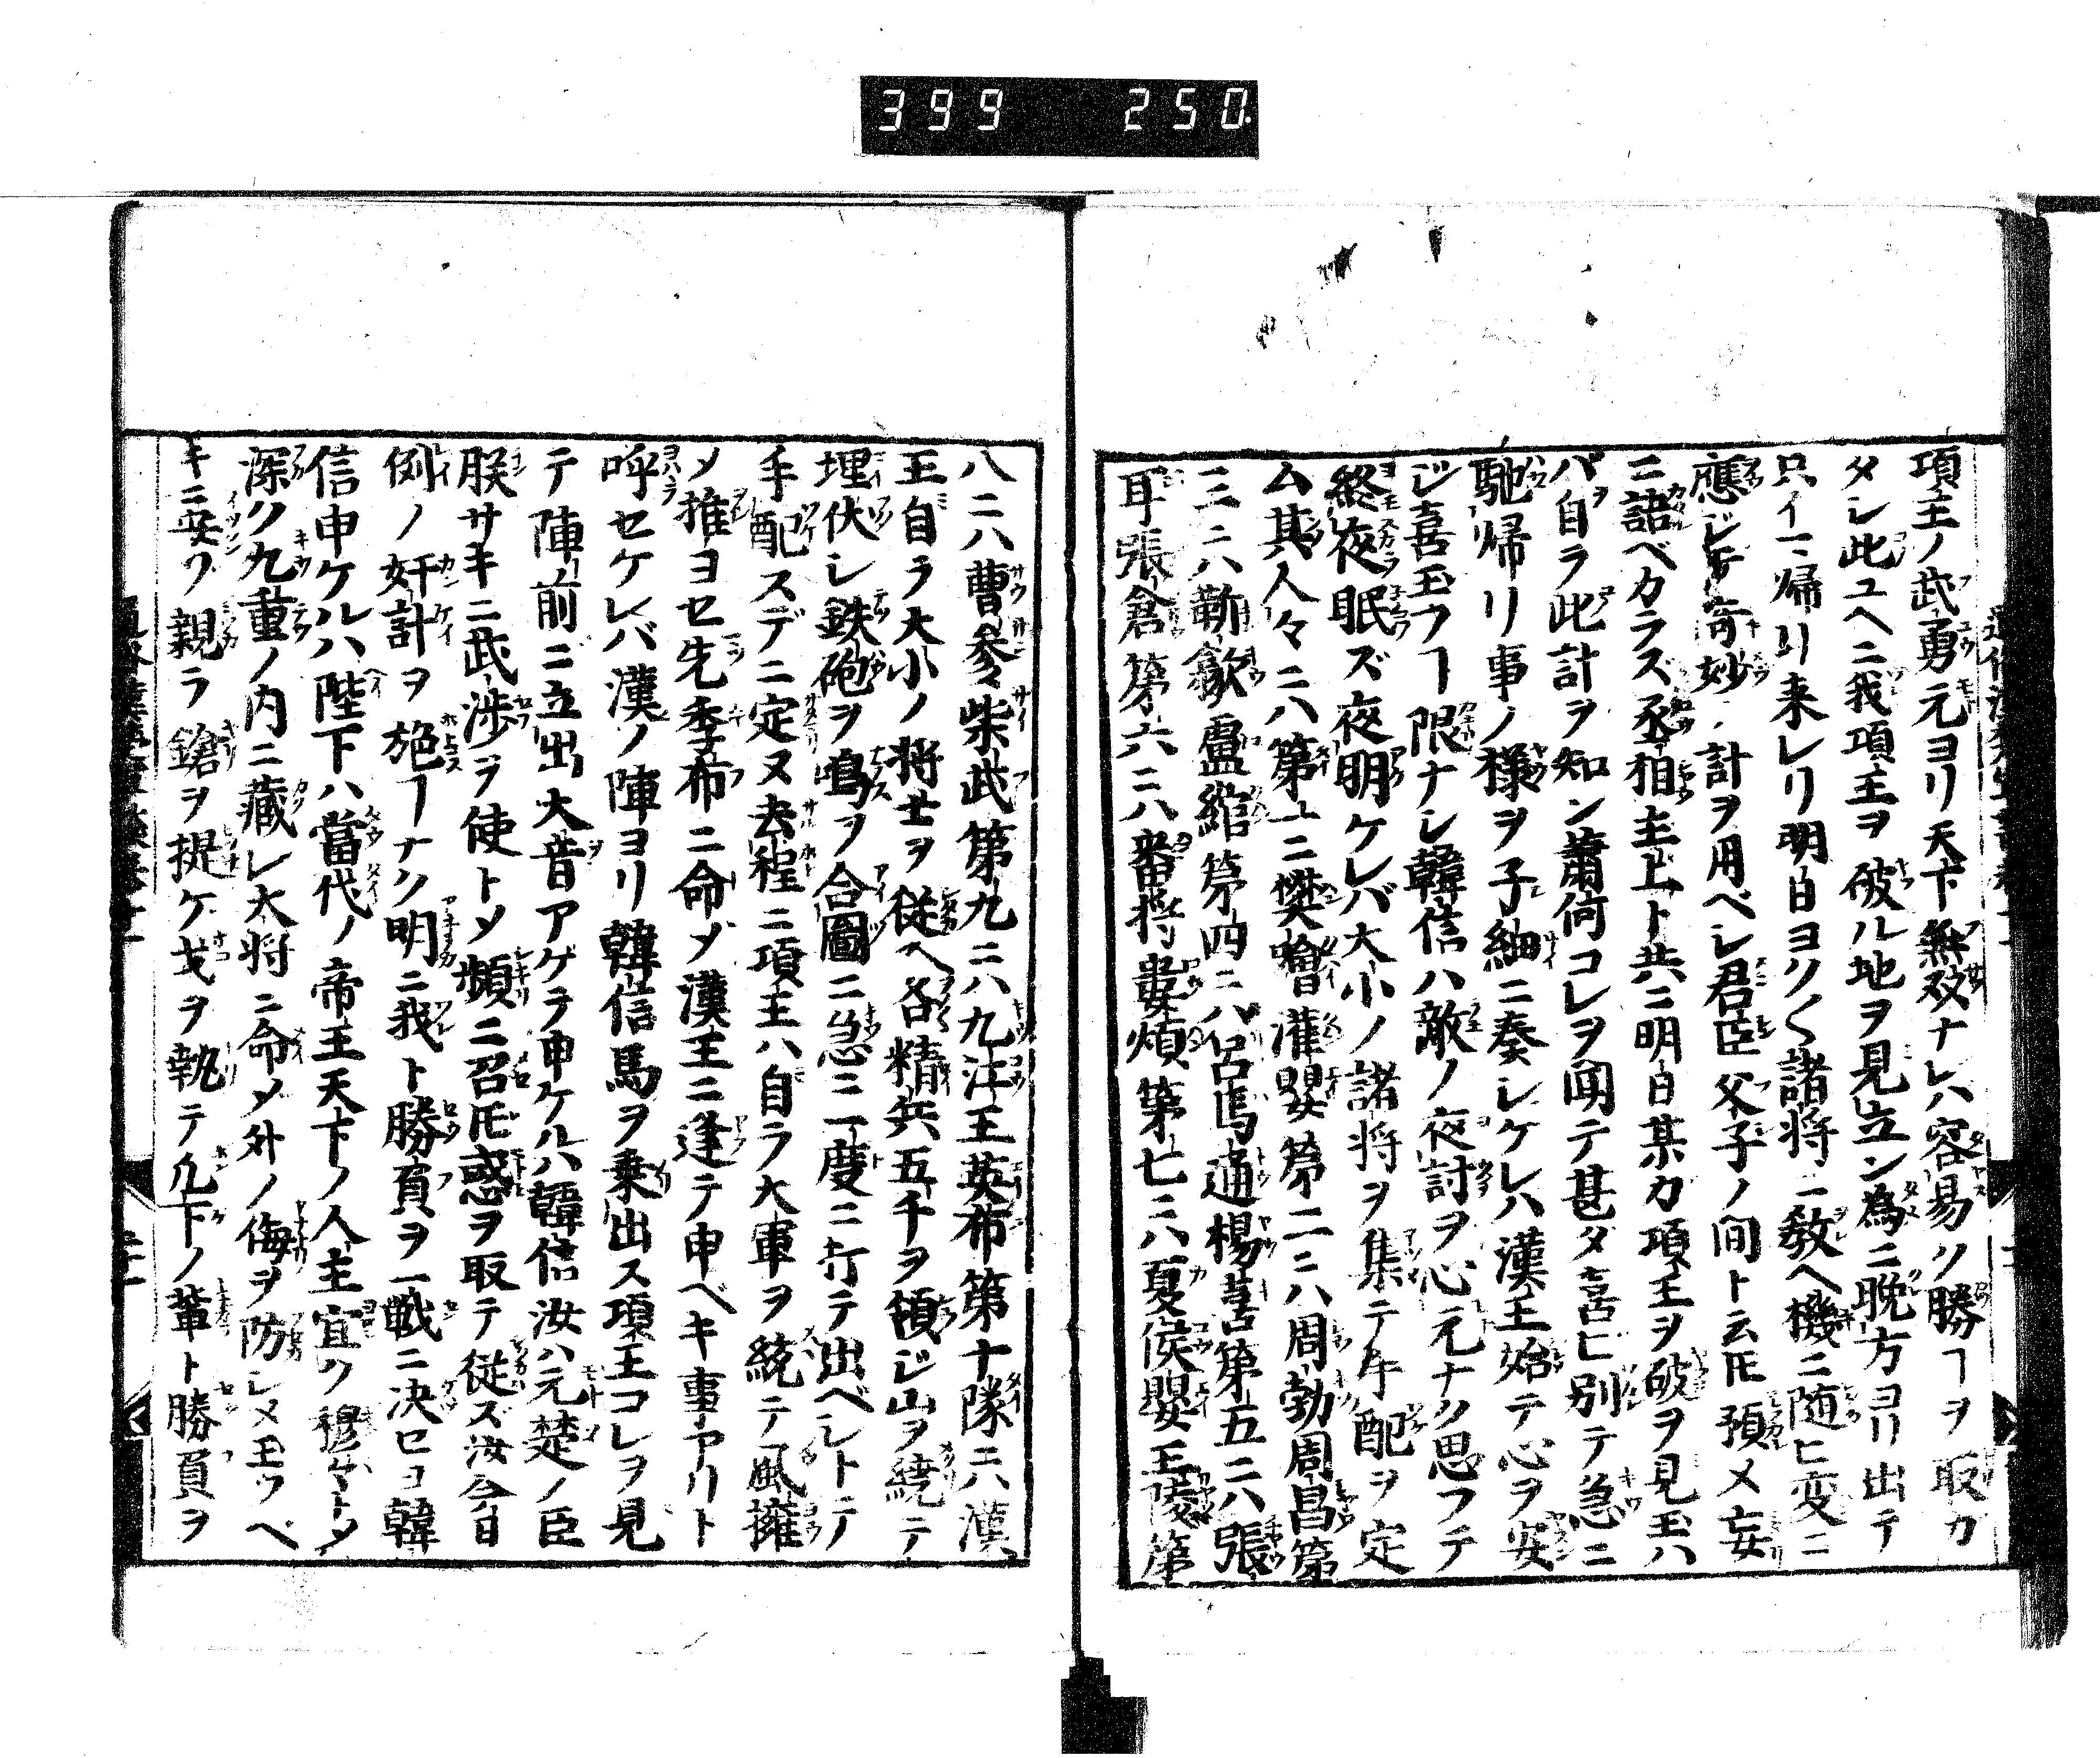 399 250.
項王ノ武勇元ヨリ天下無双ナレハ容易ク勝ヿヲ取カ
タレ此ユヘニ我項王ヲ破ル地ヲ見立ン為ニ晩方ヨリ出テ
只イマ帰リ来レリ明日ヨク〱諸将ニ教ヘ機ニ随ヒ変ニ
應じテ奇妙ノ計ヲ用ベシ君臣父子ノ間ト云𪜈預メ妄
ニ語ベカラズ丞相主上ト共ニ明日某カ項王ヲ破ヲ見玉ハ
バ自ラ此計ヲ知ン蕭何コレヲ聞テ甚タ喜ビ別テ急ニ
馳帰リ事ノ様ヲ子細ニ奏シケレハ漢王始テ心ヲ安
ジ喜玉フヿ限ナシ韓信ハ敵ノ夜討ヲ心元ナク思フテ
終夜眠ズ夜明ケレバ大小ノ諸将ヲ集テ手配ヲ定
ム其人々ニハ第一ニ樊噲灌嬰第二ニハ周勃周昌第
三ニハ靳歙盧綰第四ニハ呂馬通楊喜第五ニハ張
耳張倉第六ニハ番将婁煩第七ニハ夏侯嬰王陵第
八ニハ曹参柴武第九ニハ九江王英布第十隊ニハ漢
王自ラ大小ノ将士ヲ従ヘ各精兵五千ヲ領ジ山ヲ繞テ
埋伏シ鉄砲ヲ鳴ヲ合圖ニ急ニ一度ニ打テ出ベシトテ
手配スデニ定ヌ去程ニ項王ハ自ラ大軍ヲ統テ風擁
メ推ヨセ先季布ニ命メ漢王ニ逢テ申ベキ事アリト
呼セケレバ漢ノ陣ヨリ韓信馬ヲ乗出ス項王コレヲ見
テ陣前ニ立出大音アゲテ申ケルハ韓信汝ハ元楚ノ臣
朕サキニ武渉ヲ使トメ頻ニ召𪜈惑ヲ取テ従ズ汝今日
例ノ奸計ヲ施ヿナク明ニ我ト勝負ヲ一戦ニ决セヨ韓
信申ケルハ陛下ハ當代ノ帝王天下ノ人主宜ク穆々トメ
深ク九重ノ内ニ藏レ大将ニ命メ外ノ侮ヲ防シメ玉ウベ
キニ安ソ親ラ鎗ヲ提ケ戈ヲ執テ凡下ノ輩ト勝負ヲ